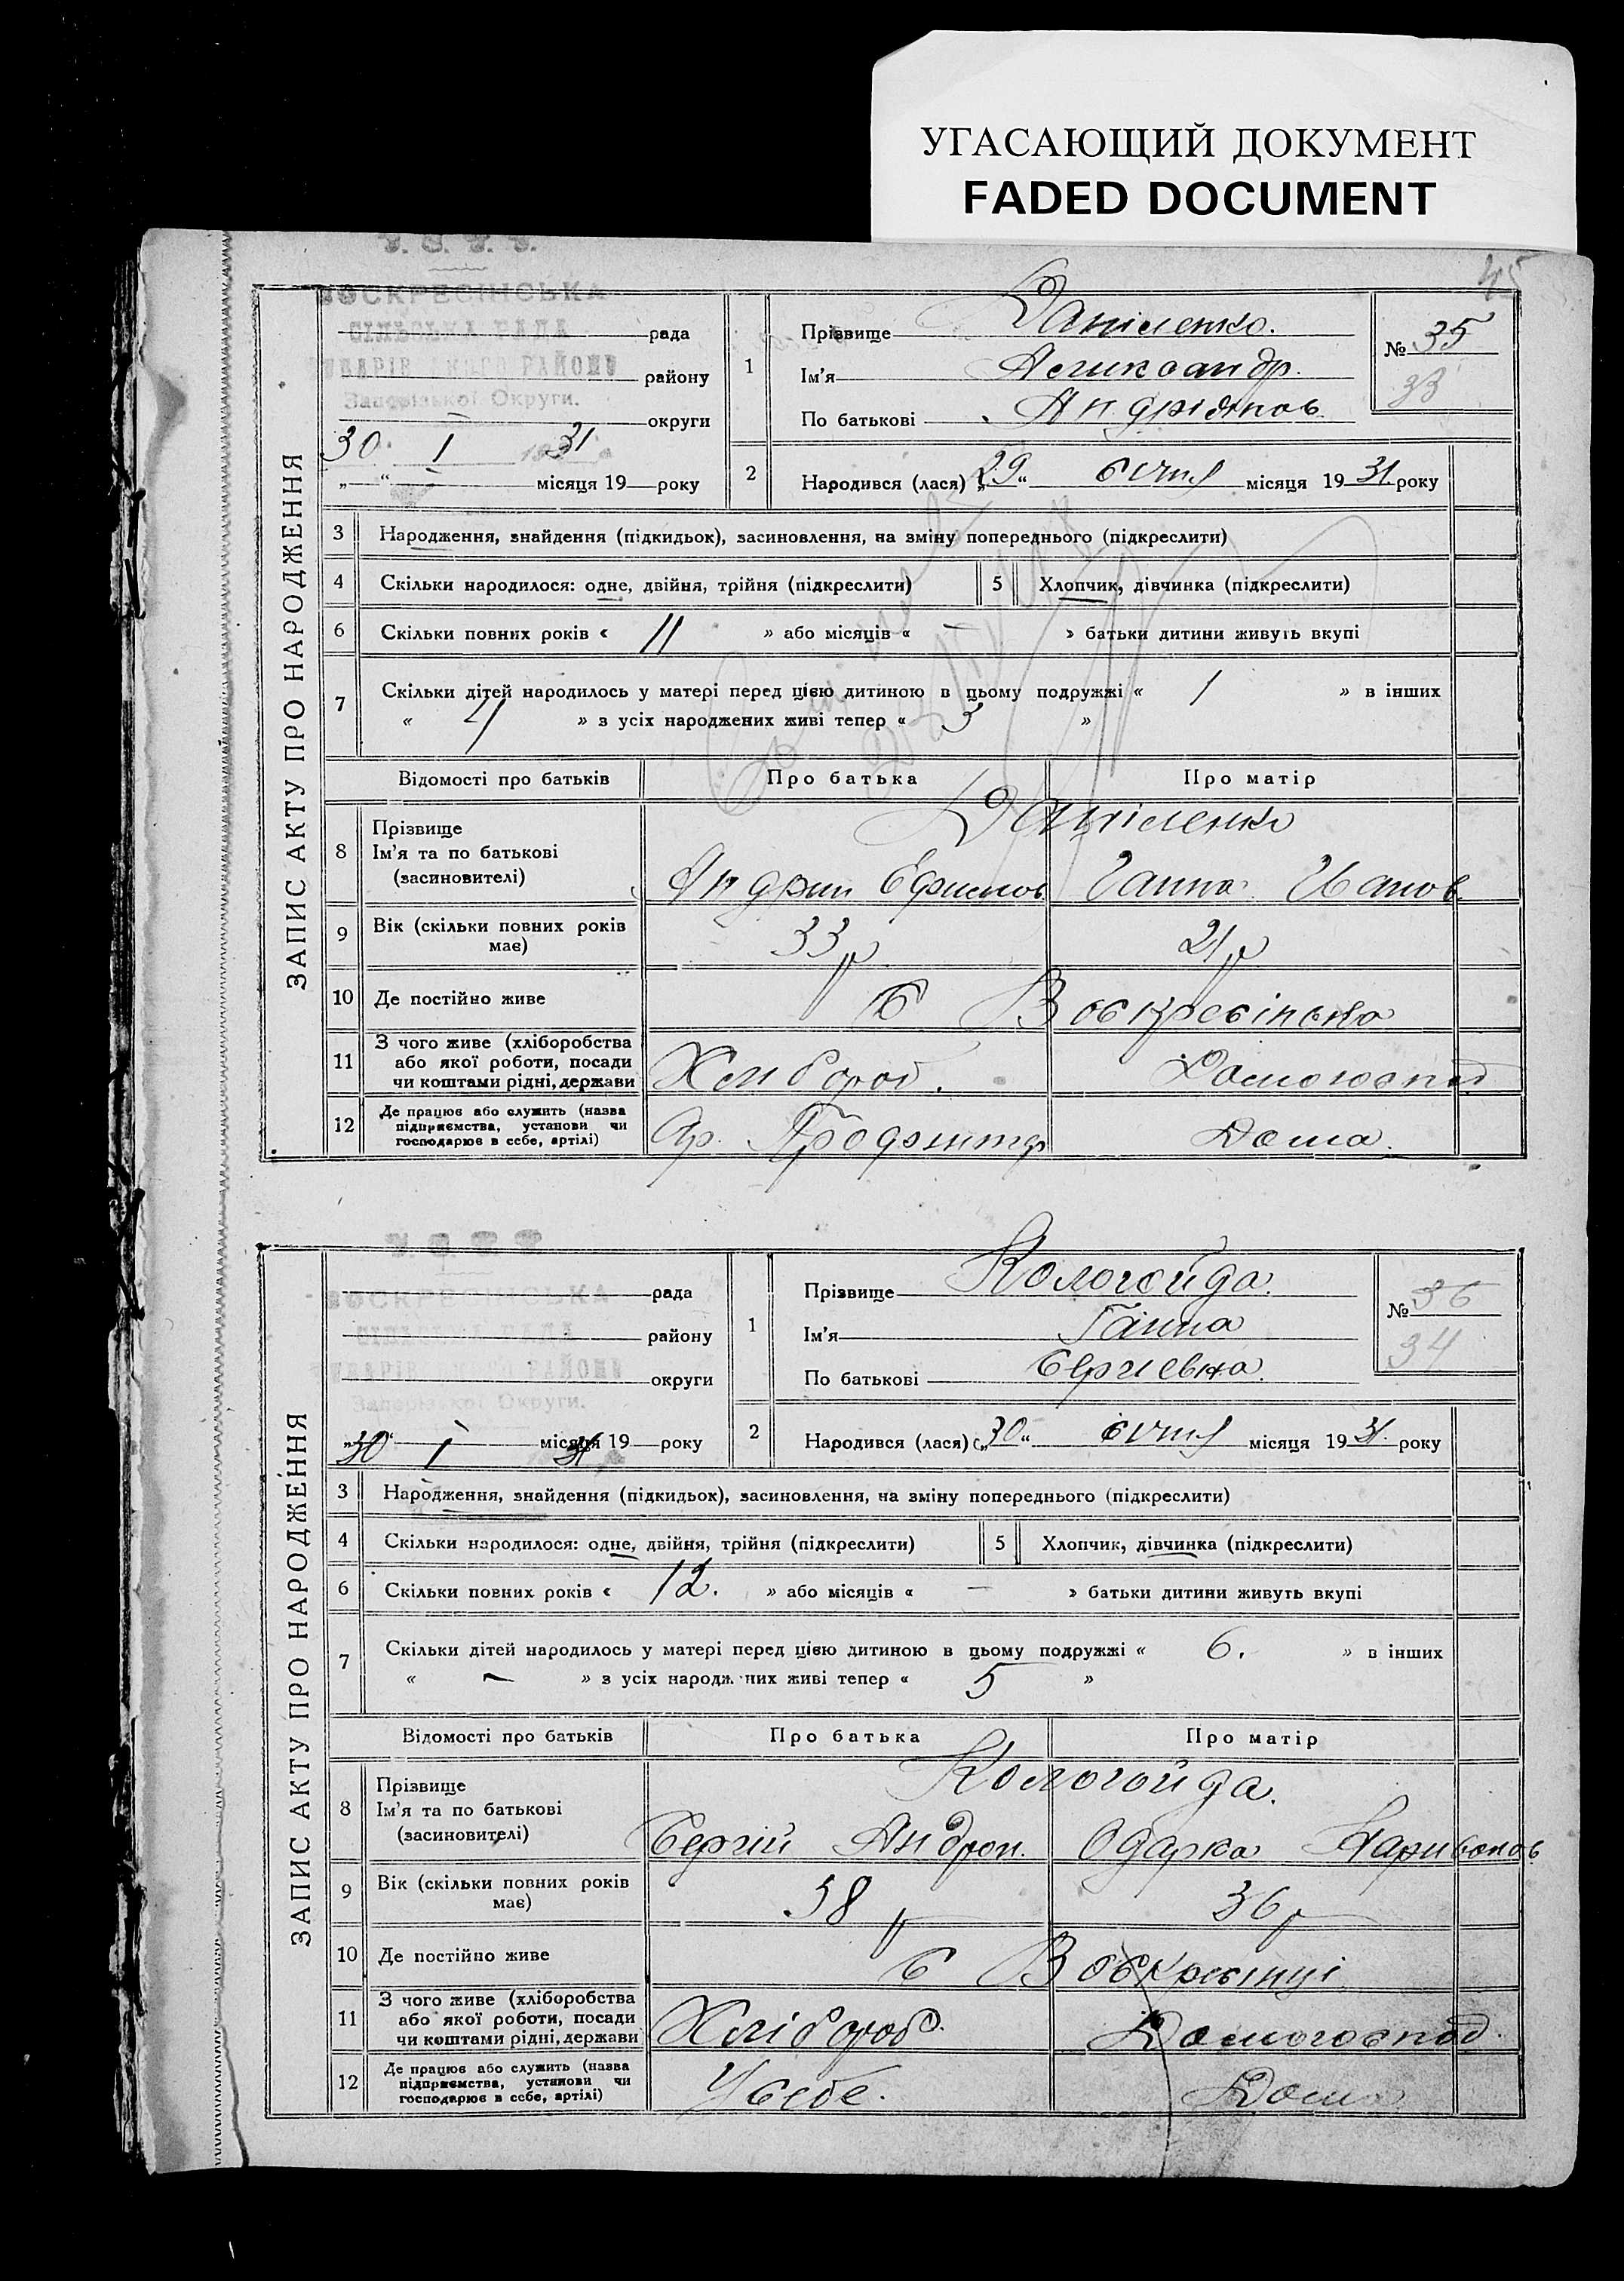 УГАСАЮЩИЙ ДОКУМЕНТ
FADED DOCUMENT
45
У. С. Р. Р.
ВОСКРЕСІНСЬКА
СІЛЬСЬКА РАДА
РАЙОНУ
Запорізької Округи.
рада
району
округи
30 I 31
„ “ місяця 19 року
ЗАПИС АКТУ ПРО НАРОДЖЕННЯ
1
Прізвище Даніленко.
Ім'я Александр.
По батькові Андріянов.
№ 35
33
2
Народився (лася) „29“ січня місяця 1931 року
3 Народження, знайдення (підкидьок), засиновлення, на зміну попереднього (підкреслити)
4 Скільки народилося: одне, двійня, трійня (підкреслити)
5 Хлопчик, дівчинка (підкреслити)
6 Скільки повних років « 11 » або місяців « – » батьки дитини живуть вкупі
7 Скільки дітей народилось у матері перед цією дитиною в цьому подружжі « 1 » в інших
« 4 » з усіх народжених живі тепер « 3 »
Відомості про батьків Про батька Про матір
8 Прізвище
Ім'я та по батькові
(засиновителі)
Даніленко
Андрій Ефимов. Ганна Иванов
9 Вік (скільки повних років має)
33 р 21 р
10 Де постійно живе
С Воскресінька
11 З чого живе (хліборобства
або якої роботи, посади
чи коштами рідні, держави
Хлибороб. Домогоспод
12 Де працює або служить (назва
підприємства, установи чи
господарює в себе, артілі)
Дома.
У. С. Р. Р.
ВОСКРЕСІНСЬКА
СІЛЬСЬКА РАДА
РАЙОНУ
Запорізької Округи.
рада
району
округи
„30“ I 31 місяця 19 року
ЗАПИС АКТУ ПРО НАРОДЖЕННЯ
1
Прізвище Кологойда.
Ім'я Ганна
По батькові Сергиевна.
№ 36
34
2
Народився (лася) „30“ січня місяця 1931. року
3 Народження, знайдення (підкидьок), засиновлення, на зміну попереднього (підкреслити)
4 Скільки народилося: одне, двійня, трійня (підкреслити)
5 Хлопчик, дівчинка (підкреслити)
6 Скільки повних років « 12. » або місяців « – » батьки дитини живуть вкупі
7 Скільки дітей народилось у матері перед цією дитиною в цьому подружжі « 6. » в інших
« – » з усіх народжених живі тепер « 5 »
Відомості про батьків Про батька Про матір
8 Прізвище
Ім'я та по батькові
(засиновителі)
Кологойда.
Сергій Андрон. Одарка
9 Вік (скільки повних років має)
38 р 36 р
10 Де постійно живе
С Воскресінці
11 З чого живе (хліборобства
або якої роботи, посади
чи коштами рідні, держави
Хлібороб. Домогоспод.
12 Де працює або служить (назва
підприємства, установи чи
господарює в себе, артілі)
У себе. Дома